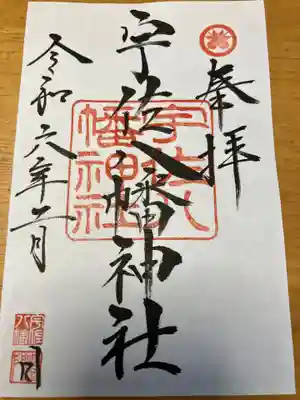 奉拝
宇佐八幡神社
宇佐八
幡神社
令和六年二月
宇佐
八幡